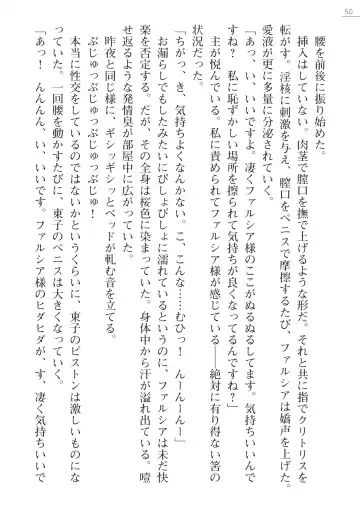 50
腰を前後に振り始めた。
挿入はしていない。肉茎で膣口を撫で上げるような形だ。それと共に指でクリトリスを
転がす。淫核に刺激を与え、膣口をペニスで摩擦するたび、ファルシアは嬌声を上げた。
愛液が更に多量に分泌されていく。
「あっ、い、いいですよ。凄くファルシア様のここがぬるぬるしてます。気持ちいいんで
すね？　私に恥ずかしい場所を擦られて気持ちが良くなってるんですね？」
主が悦んでいる。私に責められてファルシア様が感じている――絶対に有り得ない筈の
状況だった。
「ちがっ、き、気持ちよくなんかない。こ、こんな……むひっ！　んーんーんー！」
お漏らしでもしたみたいにびしょびしょに濡れているというのに、ファルシアは未だ快
楽を否定する。だが、その全身は桜色に染まっていた。身体中から汗が溢れ出ている。噎
せ返るような発情臭が部屋中に広がっていく。
昨夜と同じ様に、ギシッギシッとベッドが軋む音を立てる。
ぶじゅっぷじゅっぷじゅっぷじゅ！
本当に性交をしているのではないかというくらいに、東子のピストンは激しいものにな
っていた。一回腰を動かすたびに、東子のペニスは大きくなっていく。
「あっ！　んんんん、い、いいです。ファルシア様のヒダヒダが、す、凄く気持ちいいで